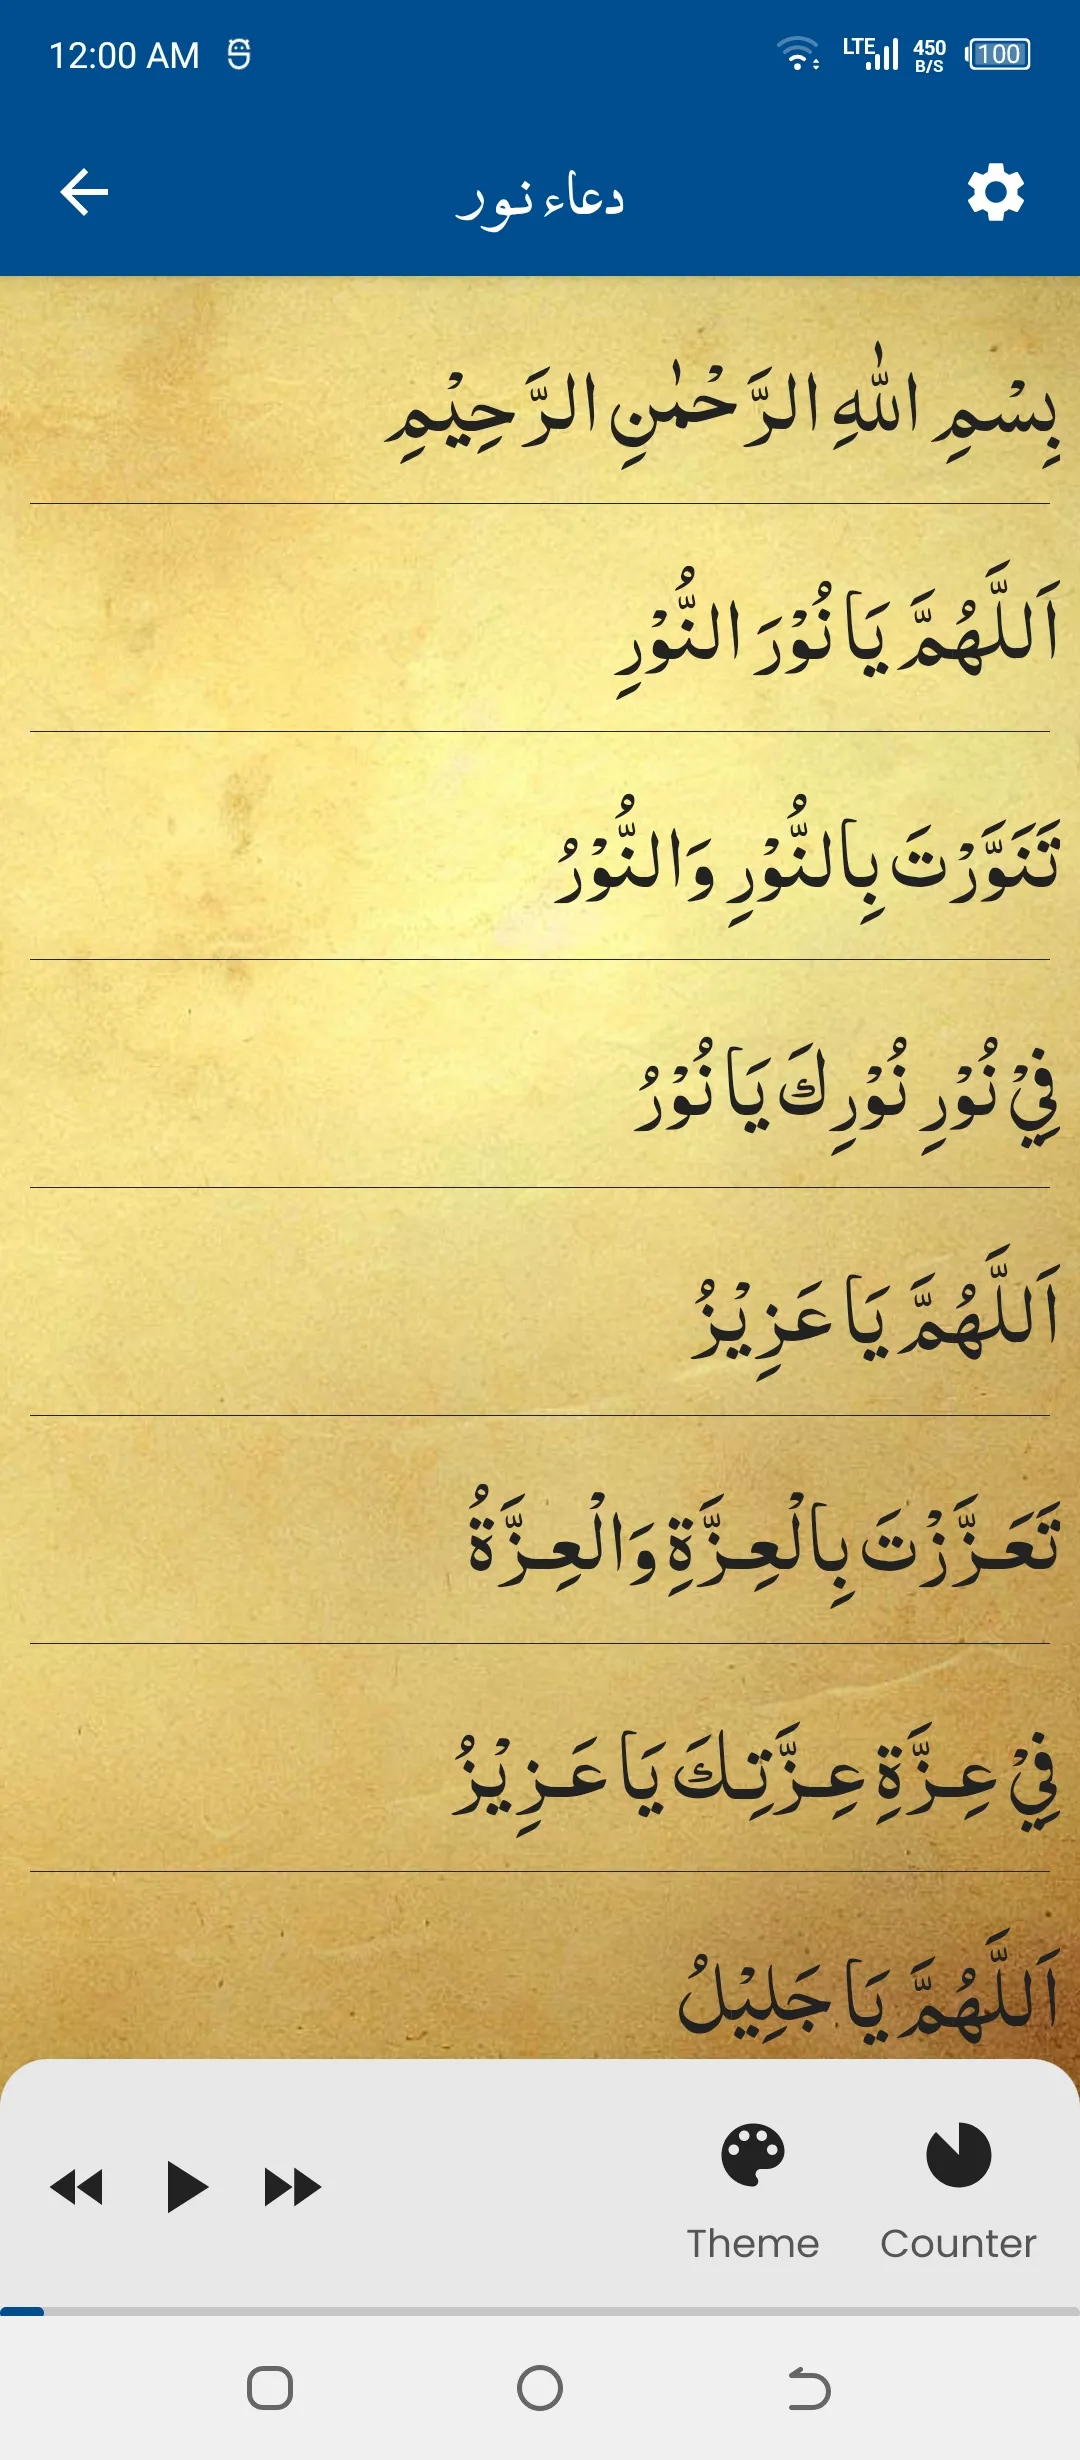 12:00 AM
LTE 450 B/S 100
دعاء نور
بِسْمِ اللّٰهِ الرَّحْمٰنِ الرَّحِيْمِ
اَللَّهُمَّ يَا نُوْرَ النُّوْرِ
تَنَوَّرْتَ بِالنُّوْرِ وَالنُّوْرُ
فِيْ نُوْرِ نُوْرِكَ يَا نُوْرُ
اَللَّهُمَّ يَا عَزِيْزُ
تَعَزَّزْتَ بِالْعِزَّةِ وَالْعِزَّةُ
فِيْ عِزَّةِ عِزَّتِكَ يَا عَزِيْزُ
اَللَّهُمَّ يَا جَلِيْلُ
Theme
Counter